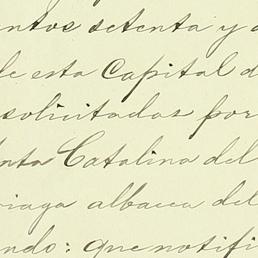 entos setenta y
de esta Capital d
solicitadas por
anta Catalina del
riaga albacea del
ndo: que notifi